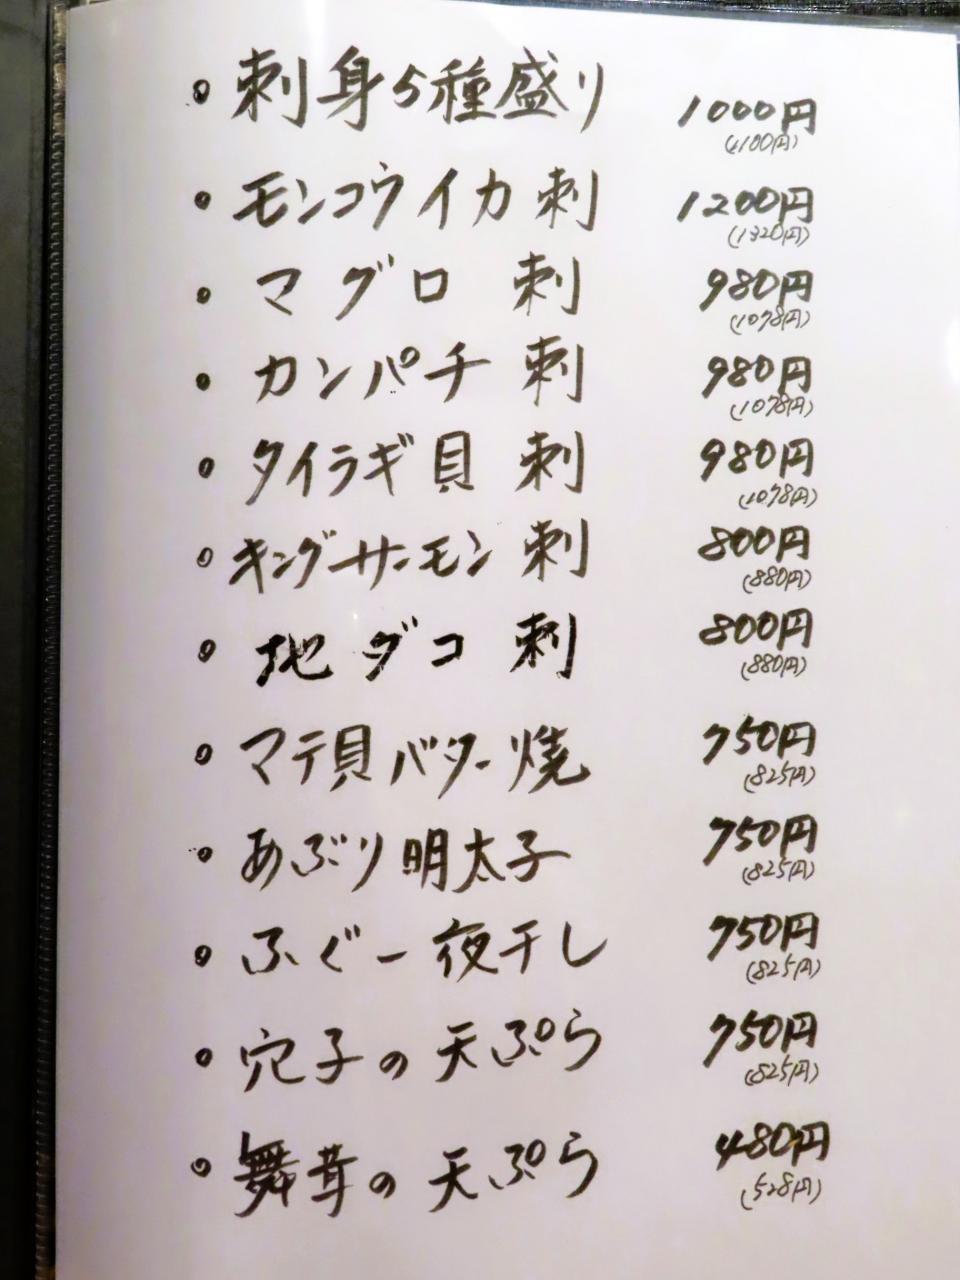 • 刺身5種盛り 1000円
(1100円)
• モンコウイカ刺 1200円
(1320円)
• マグロ刺 980円
(1078円)
• カンパチ刺 980円
(1078円)
• タイラギ貝刺 980円
(1078円)
• キングサーモン刺 800円
(880円)
• 地ダコ刺 800円
(880円)
• マテ貝バター焼 750円
(825円)
• あぶり明太子 750円
(825円)
• ふぐ一夜干し 750円
(825円)
• 穴子の天ぷら 750円
(825円)
• 舞茸の天ぷら 480円
(528円)